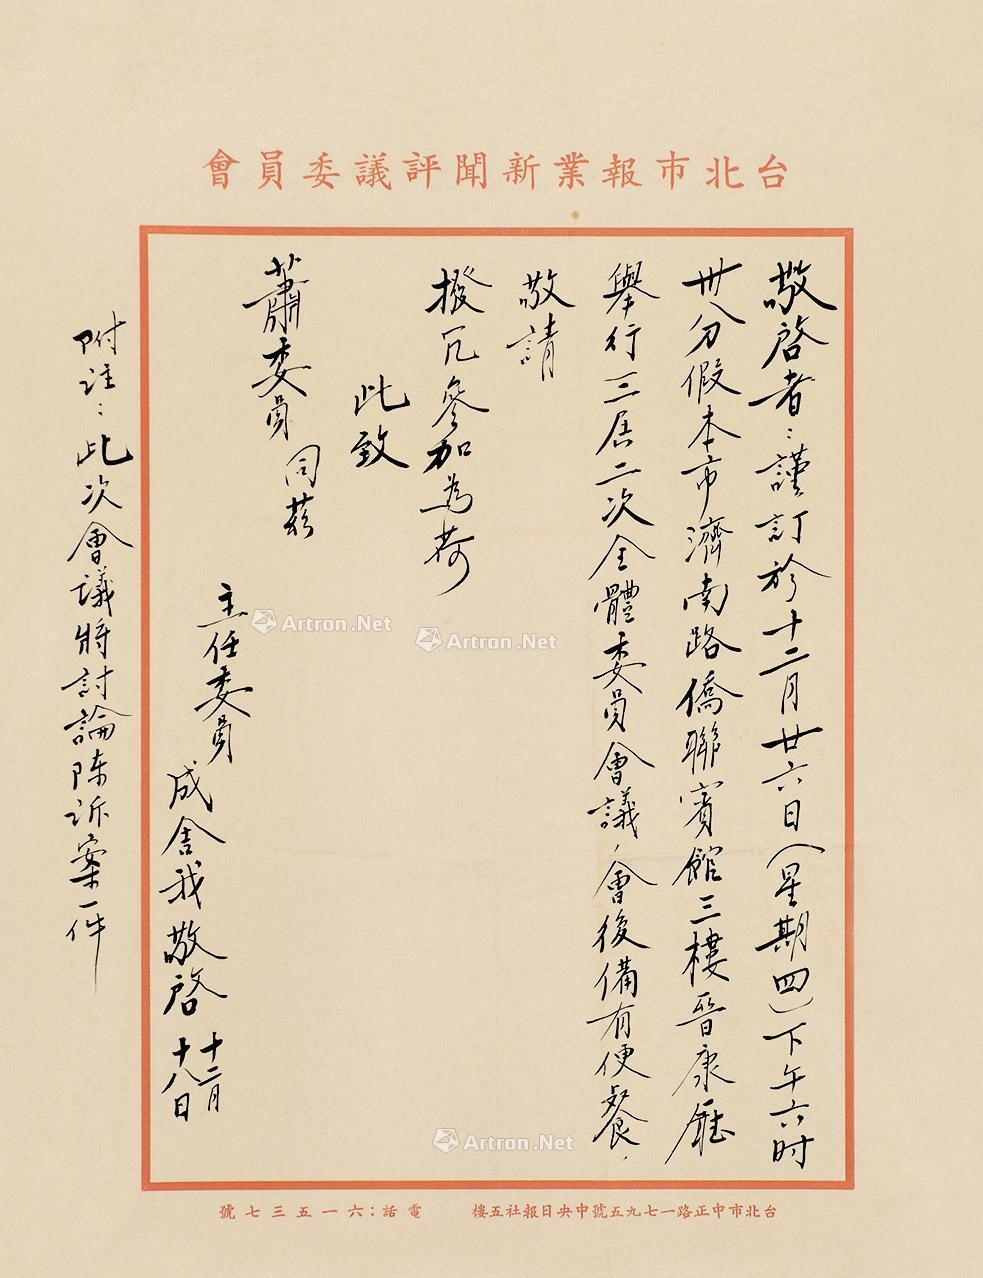 台北市報業新聞評議委員會
敬啓者：謹訂於十二月廿六日（星期四）下午六时
卅分假本市濟南路僑聯賓館三樓晉康廳
舉行三居二次全體委員會議，會後備有便餐，
敬請
撥冗參加為荷
此致
蕭委員同茲
主任委員
成舍我敬啓
十二月
十八日
附註：此次會議將討論陈诉案一件
台北市中正路一七九五號中央日報社五樓
電話：六一五三七號
Artron.Net
Artron.Net
Artron.Net